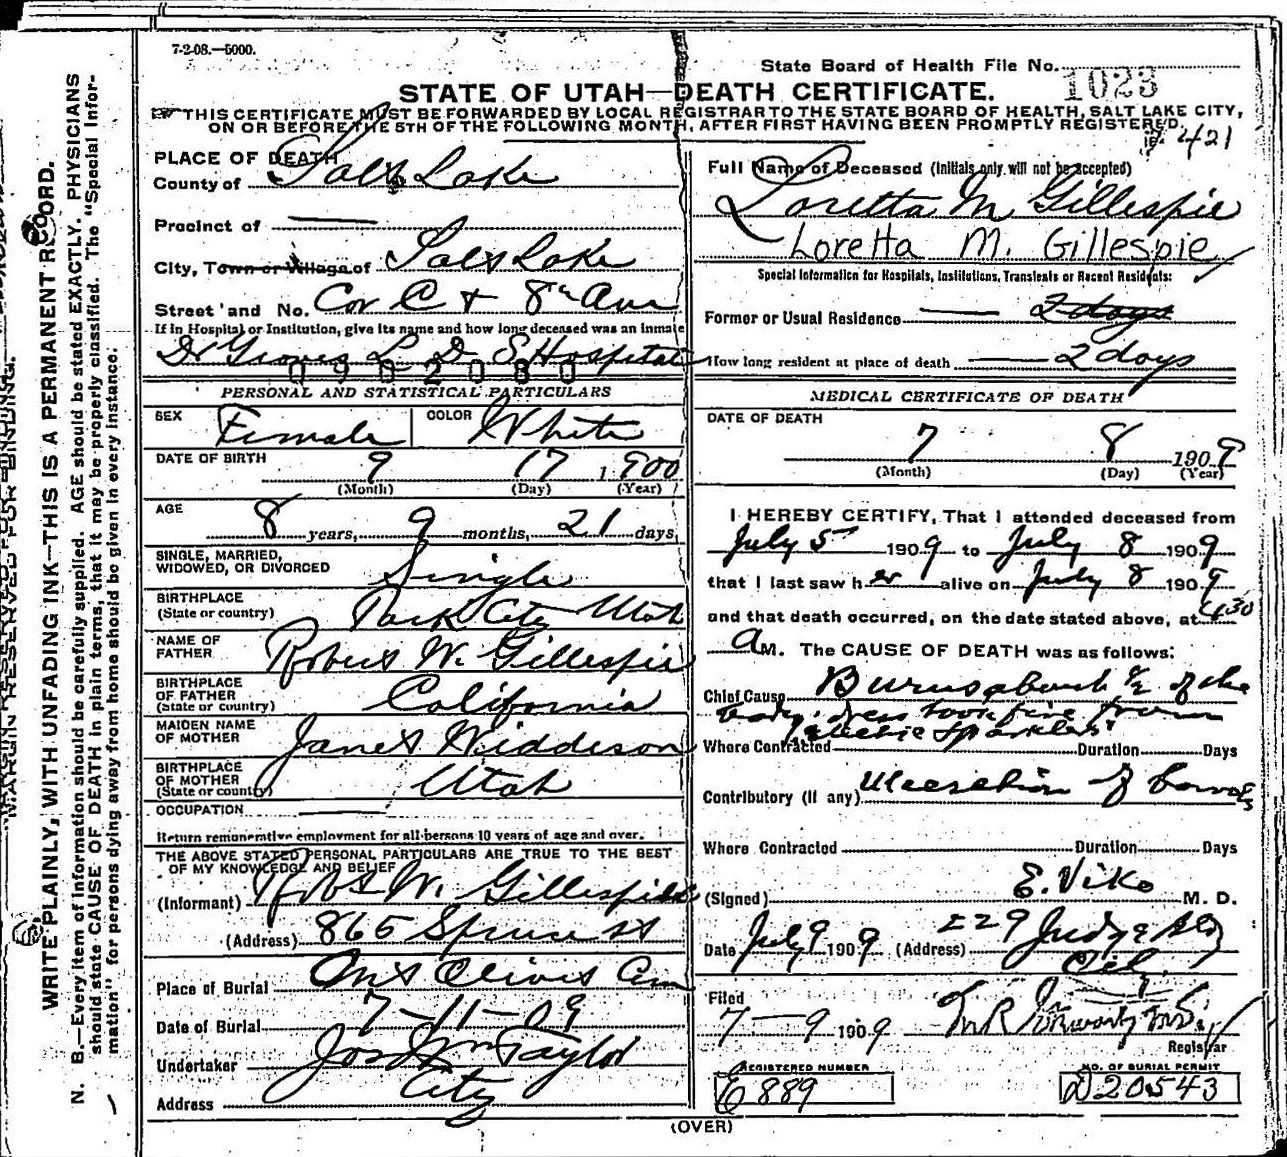 7-2-08.—5000.
State Board of Health File No. 1023
STATE OF UTAH—DEATH CERTIFICATE.
THIS CERTIFICATE MUST BE FORWARDED BY LOCAL REGISTRAR TO THE STATE BOARD OF HEALTH, SALT LAKE CITY,
ON OR BEFORE THE 5TH OF THE FOLLOWING MONTH, AFTER FIRST HAVING BEEN PROMPTLY REGISTERED.
421
PLACE OF DEATH
County of Salt Lake
Precinct of —
City, Town or Village of Salt Lake
Street and No. Cor C + 8th Ave
If in Hospital or Institution, give its name and how long deceased was an inmate
Dr Groves L D S Hospital
0902080
Full Name of Deceased (Initials only will not be accepted)
Loretta M Gillespie
Loretta M. Gillespie
Special Information for Hospitals, Institutions, Transients or Recent Residents:
Former or Usual Residence — 2 days
How long resident at place of death — 2 days
PERSONAL AND STATISTICAL PARTICULARS
SEX Female COLOR White
DATE OF BIRTH 9 17 1900
(Month) (Day) (Year)
AGE 8 years, 9 months, 21 days,
SINGLE, MARRIED,
WIDOWED, OR DIVORCED Single
BIRTHPLACE
(State or country) Park City Utah
NAME OF
FATHER Robert W. Gillespie
BIRTHPLACE
OF FATHER
(State or country) California
MAIDEN NAME
OF MOTHER Janet Widdeson
BIRTHPLACE
OF MOTHER
(State or country) Utah
OCCUPATION —
Return remunerative employment for all persons 10 years of age and over.
THE ABOVE STATED PERSONAL PARTICULARS ARE TRUE TO THE BEST
OF MY KNOWLEDGE AND BELIEF
(Informant) Robt W. Gillespie
(Address) 865 Spruce St
Place of Burial Mt Olivet Cem
Date of Burial 7-11-09
Undertaker Jos Wm Taylor
Address City
MEDICAL CERTIFICATE OF DEATH
DATE OF DEATH
7 8 1909
(Month) (Day) (Year)
I HEREBY CERTIFY, That I attended deceased from
July 5 1909 to July 8 1909
that I last saw her alive on July 8 1909
and that death occurred, on the date stated above, at 4:30
A M. The CAUSE OF DEATH was as follows:
Chief Cause Burns about 1/2 of the
body. dress took fire from
electric sparkler
Where Contracted Duration Days
Contributory (If any) Ulceration of bowels
Where Contracted Duration Days
(Signed) E. Viko M. D.
Date July 9 1909 (Address) 229 Judge Bldg
City
Filed
7-9 1909
Registrar
REGISTERED NUMBER
E889
NO. OF BURIAL PERMIT
D20543
(OVER)
MARGIN RESERVED FOR BINDING.
WRITE PLAINLY, WITH UNFADING INK—THIS IS A PERMANENT RECORD.
N. B.—Every item of information should be carefully supplied. AGE should be stated EXACTLY. PHYSICIANS
should state CAUSE OF DEATH in plain terms, that it may be properly classified. The "Special Infor-
mation" for persons dying away from home should be given in every instance.